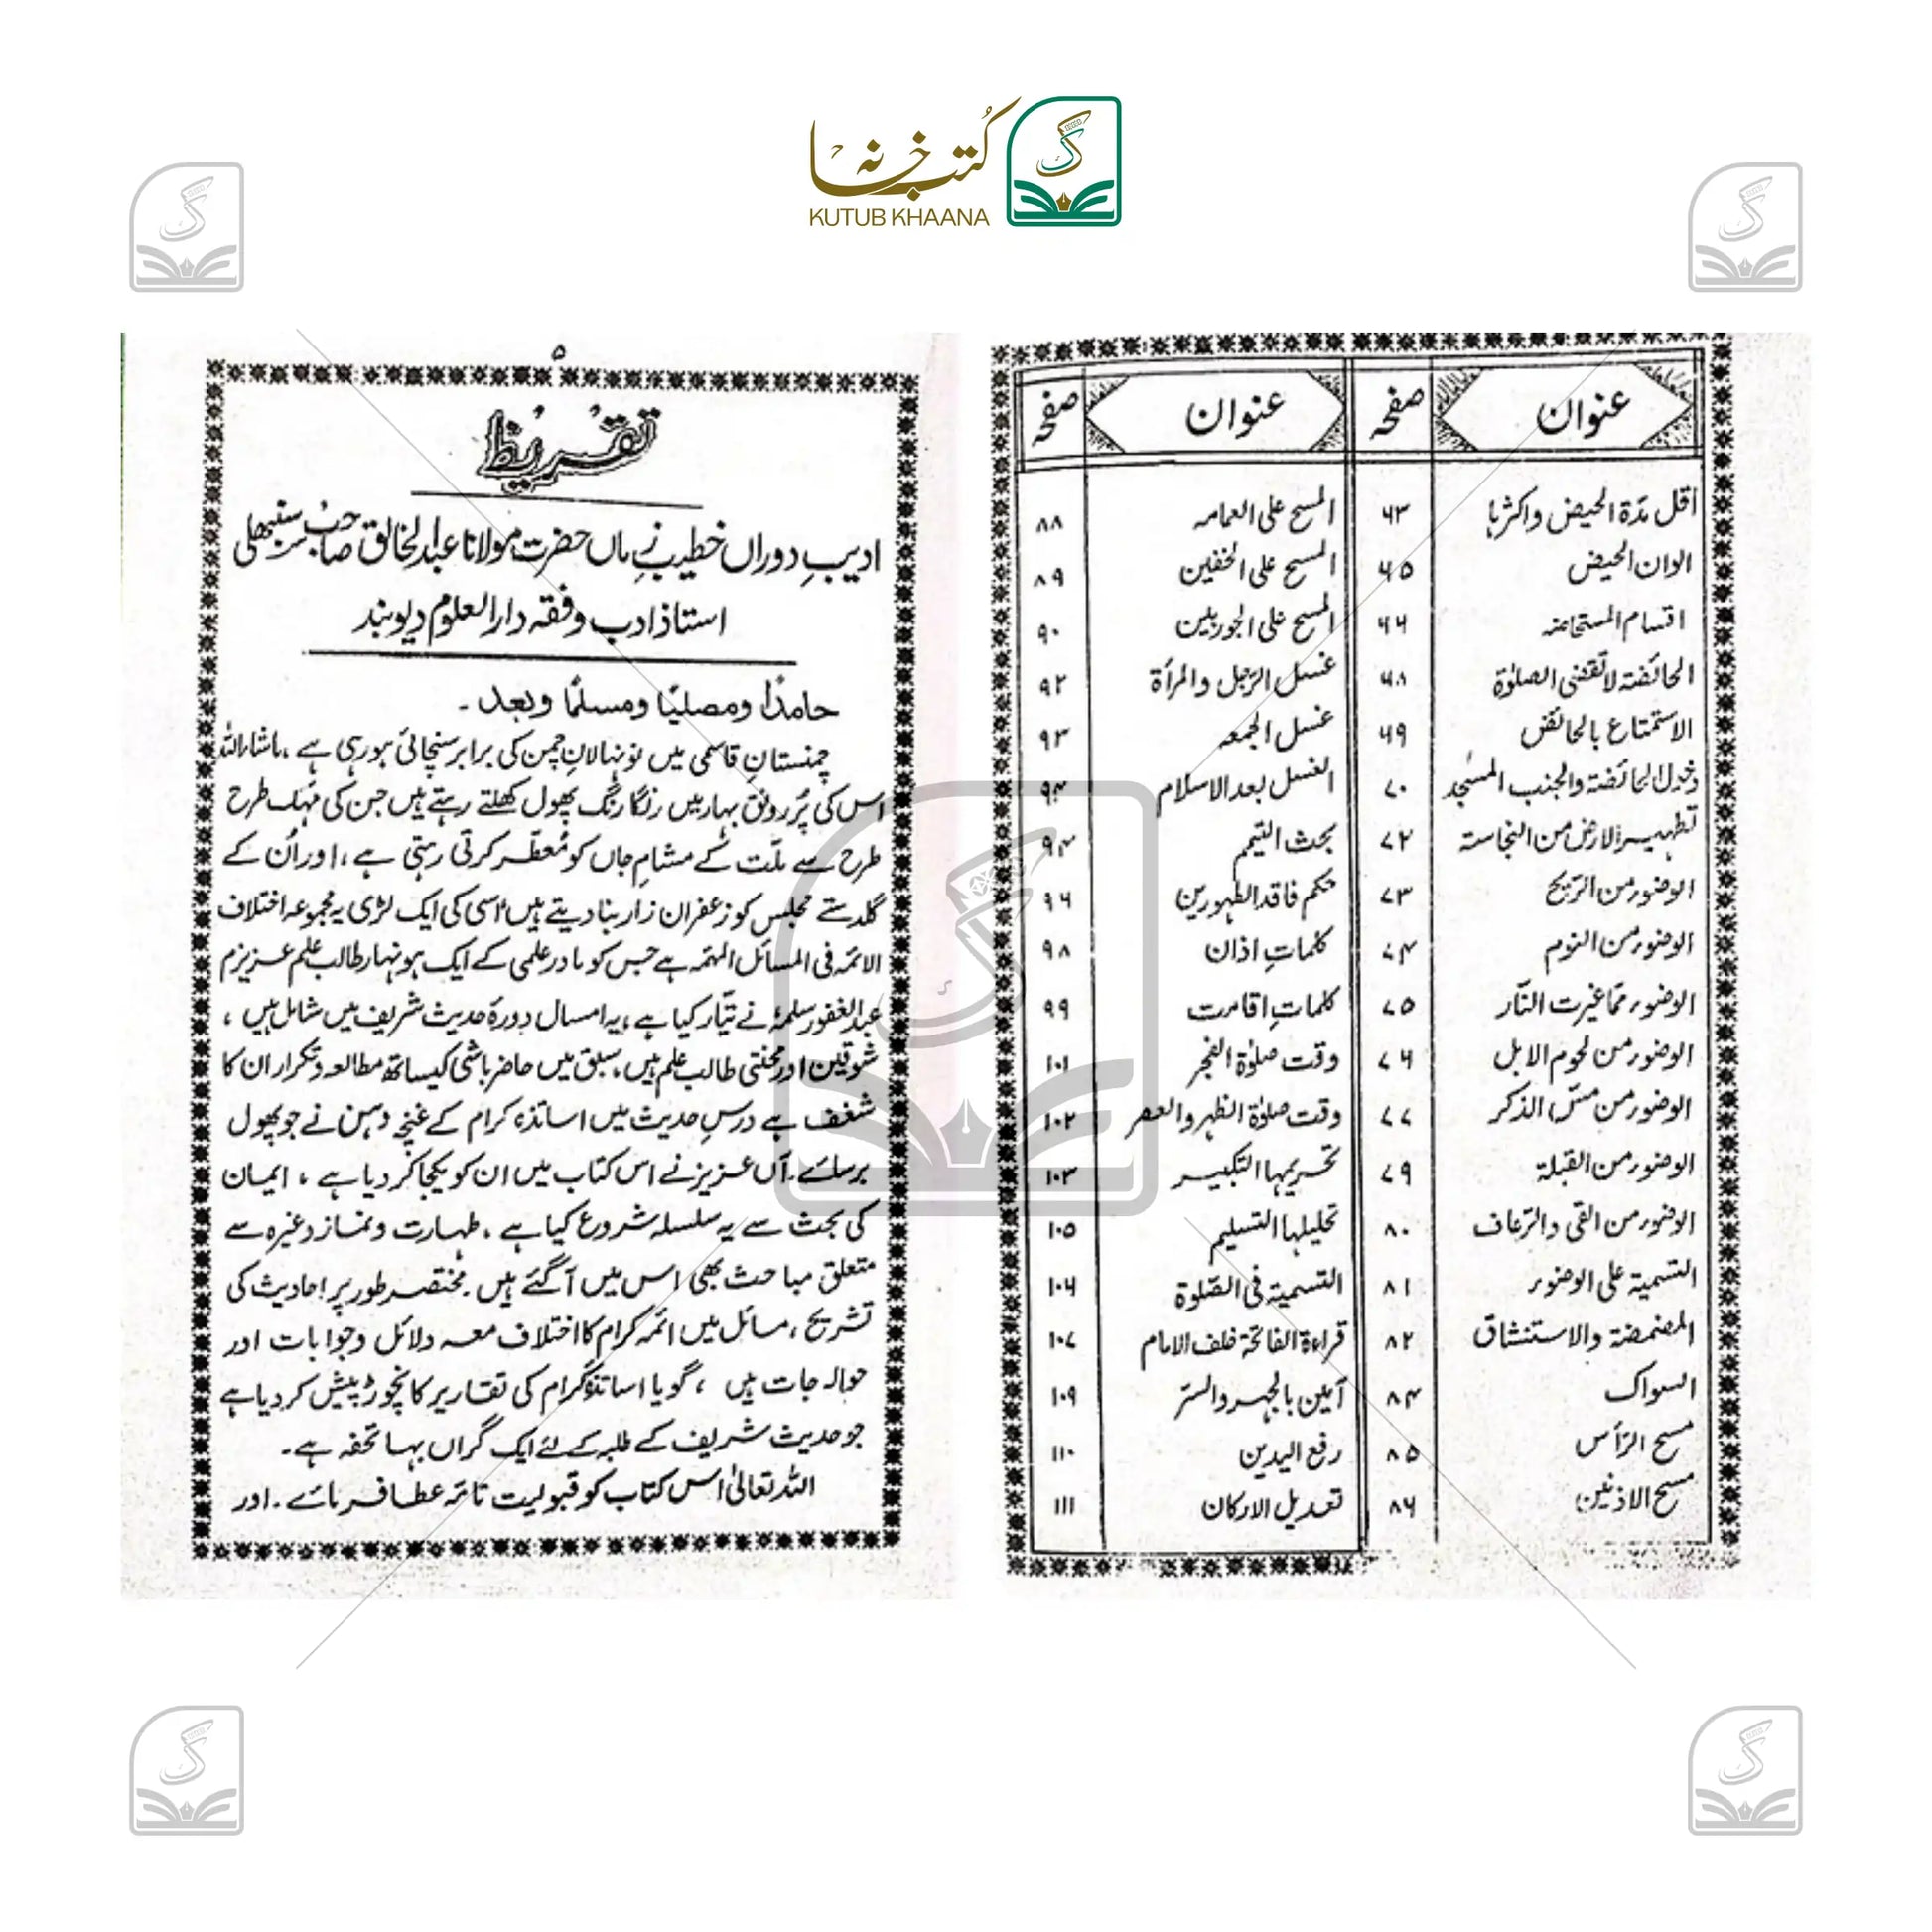 كُتب خانہ
KUTUB KHAANA
عنوان صفحہ عنوان صفحہ
اقل مدّة الحیض واکثرہا ۶۳ المسح علی العمامہ ۸۸
الوان الحیض ۶۵ المسح علی الخفین ۸۹
اقسام المستحاضہ ۶۶ المسح علی الجوربین ۹۰
الحائضة لا تقضی الصلوٰة ۶۸ غسل الرّجل والمرأة ۹۲
الاستمتاع بالحائض ۶۹ غسل الجمعہ ۹۳
دخول الحائضة والجنب المسجد ۷۰ الغسل بعد الاسلام ۹۴
تطہیر الارض من النجاستہ ۷۲ بحث التیمم ۹۴
الوضوء من الرّیح ۷۳ حکم فاقد الطہورین ۹۶
الوضوء من النوم ۷۴ کلماتِ اذان ۹۸
الوضوء ممّا غیرت النّار ۷۵ کلماتِ اقامت ۹۹
الوضوء من لحوم الابل ۷۶ وقت صلوٰة الفجر ۱۰۱
الوضوء من مسّ الذکر ۷۷ وقت صلوٰة الظہر والعصر ۱۰۲
الوضوء من القبلة ۷۹ تحریمہا التکبیر ۱۰۳
الوضوء من القی والرّعاف ۸۰ تحلیلہا التسلیم ۱۰۵
التسمیة علی الوضوء ۸۱ التسمیة فی الصّلوة ۱۰۶
المضمضة والاستنشاق ۸۲ قراءة الفاتحة خلف الامام ۱۰۷
السواک ۸۴ آمین بالجہر والسّر ۱۰۹
مسح الرّأس ۸۵ رفع الیدین ۱۱۰
مسح الاذنین ۸۶ تعدیل الارکان ۱۱۱
۵
تقریظ
ادیبِ دوراں خطیبِ زماں حضرت مولانا عبد الخالق صاحب سنبھلی
استاذ ادب وفقہ دار العلوم دیوبند
حامدًا ومصلیًا ومسلمًا وبعد۔
چمنستانِ قاسمی میں نونہالانِ چمن کی برابر سنچائی ہو رہی ہے، ماشاراللہ
اس کی پُر رونق بہار میں رنگا رنگ پھول کھلتے رہتے ہیں جن کی مہک طرح
طرح سے ملّت کے مشامِ جاں کو مُعطّر کرتی رہتی ہے، اور اُن کے
گلدستے مجلس کو زعفران زار بنا دیتے ہیں اسی کی ایک لڑی یہ مجموعہ اختلاف
الائمہ فی المسائل المہمّہ ہے جس کو مادر علمی کے ایک ہونہار طالب علم عزیزم
عبد الغفور سلمہٗ نے تیّار کیا ہے، یہ امسال دورۂ حدیث شریف میں شامل ہیں،
شوقین اور محنتی طالب علم ہیں، سبق میں حاضر باشی کیساتھ مطالعہ وتکرار ان کا
شغف ہے درسِ حدیث میں اساتذہ کرام کے غنچہ دہن نے جو پھول
برسائے۔ آں عزیز نے اس کتاب میں ان کو یکجا کر دیا ہے، ایمان
کی بحث سے یہ سلسلہ شروع کیا ہے، طہارت ونماز وغیرہ سے
متعلق مباحث بھی اس میں آگئے ہیں۔ مختصر طور پر احادیث کی
تشریح، مسائل میں ائمہ کرام کا اختلاف معہ دلائل وجوابات اور
حوالہ جات ہیں، گویا اساتذہ کرام کی تقاریر کا نچوڑ پیش کر دیا ہے
جو حدیث شریف کے طلبہ کے لئے ایک گراں بہا تحفہ ہے۔
اللہ تعالیٰ اس کتاب کو قبولیت تامّہ عطا فرمائے۔ اور